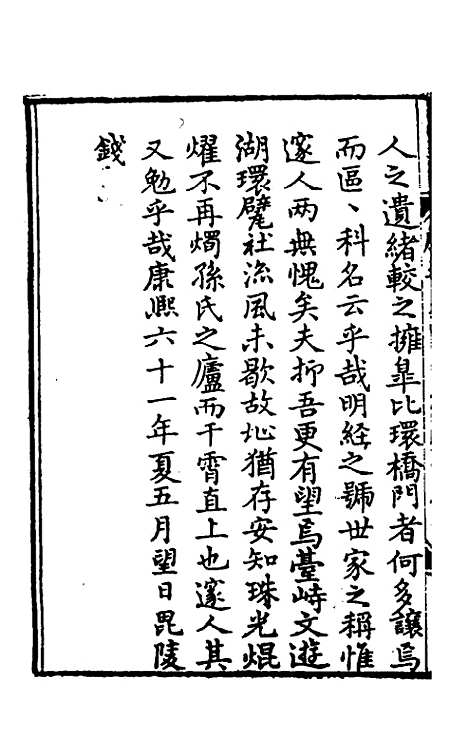 人之遺緒較之擁臯比環橋門者何多讓焉
而區、科名云乎哉明経之號世家之稱惟
邃人两無愧矣夫抑吾更有望焉臺峙文遊
湖環甓社流風未歇故址猶存安知珠光焜
燿不再燭孫氏之廬而干霄直上也邃人其
又勉乎哉康熈六十一年夏五月望日毘陵
錢